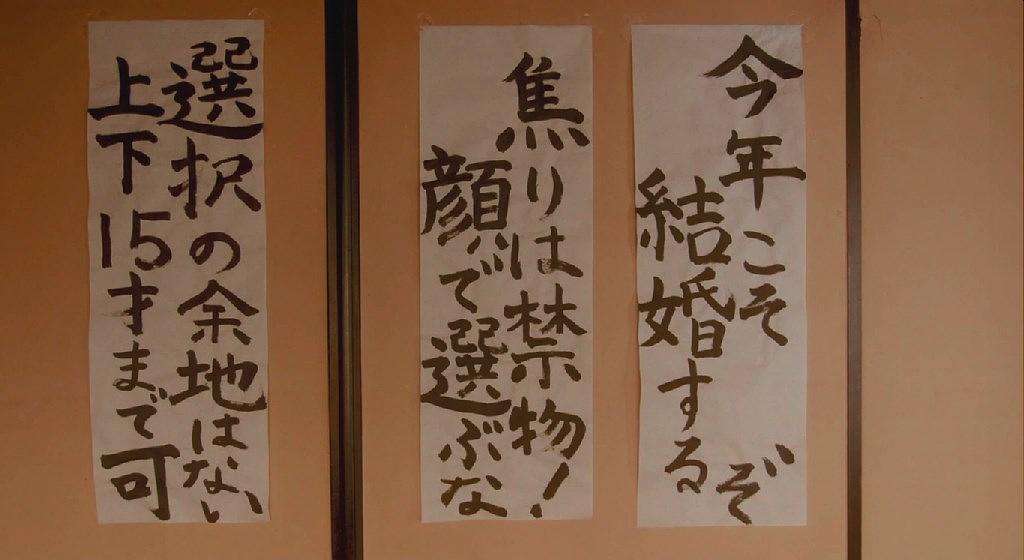 今年こそ
結婚するぞ
焦りは禁物!
顔で選ぶな
選択の余地はない
上下15才まで可